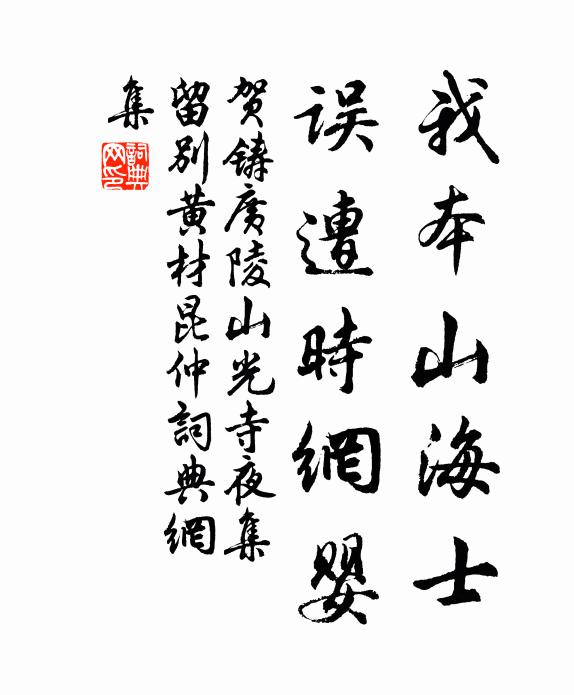 我本山海士
误遭時網婴
贺鑄廣陵山光寺夜集
留别黄材昆仲詞典網
集
詞典网印